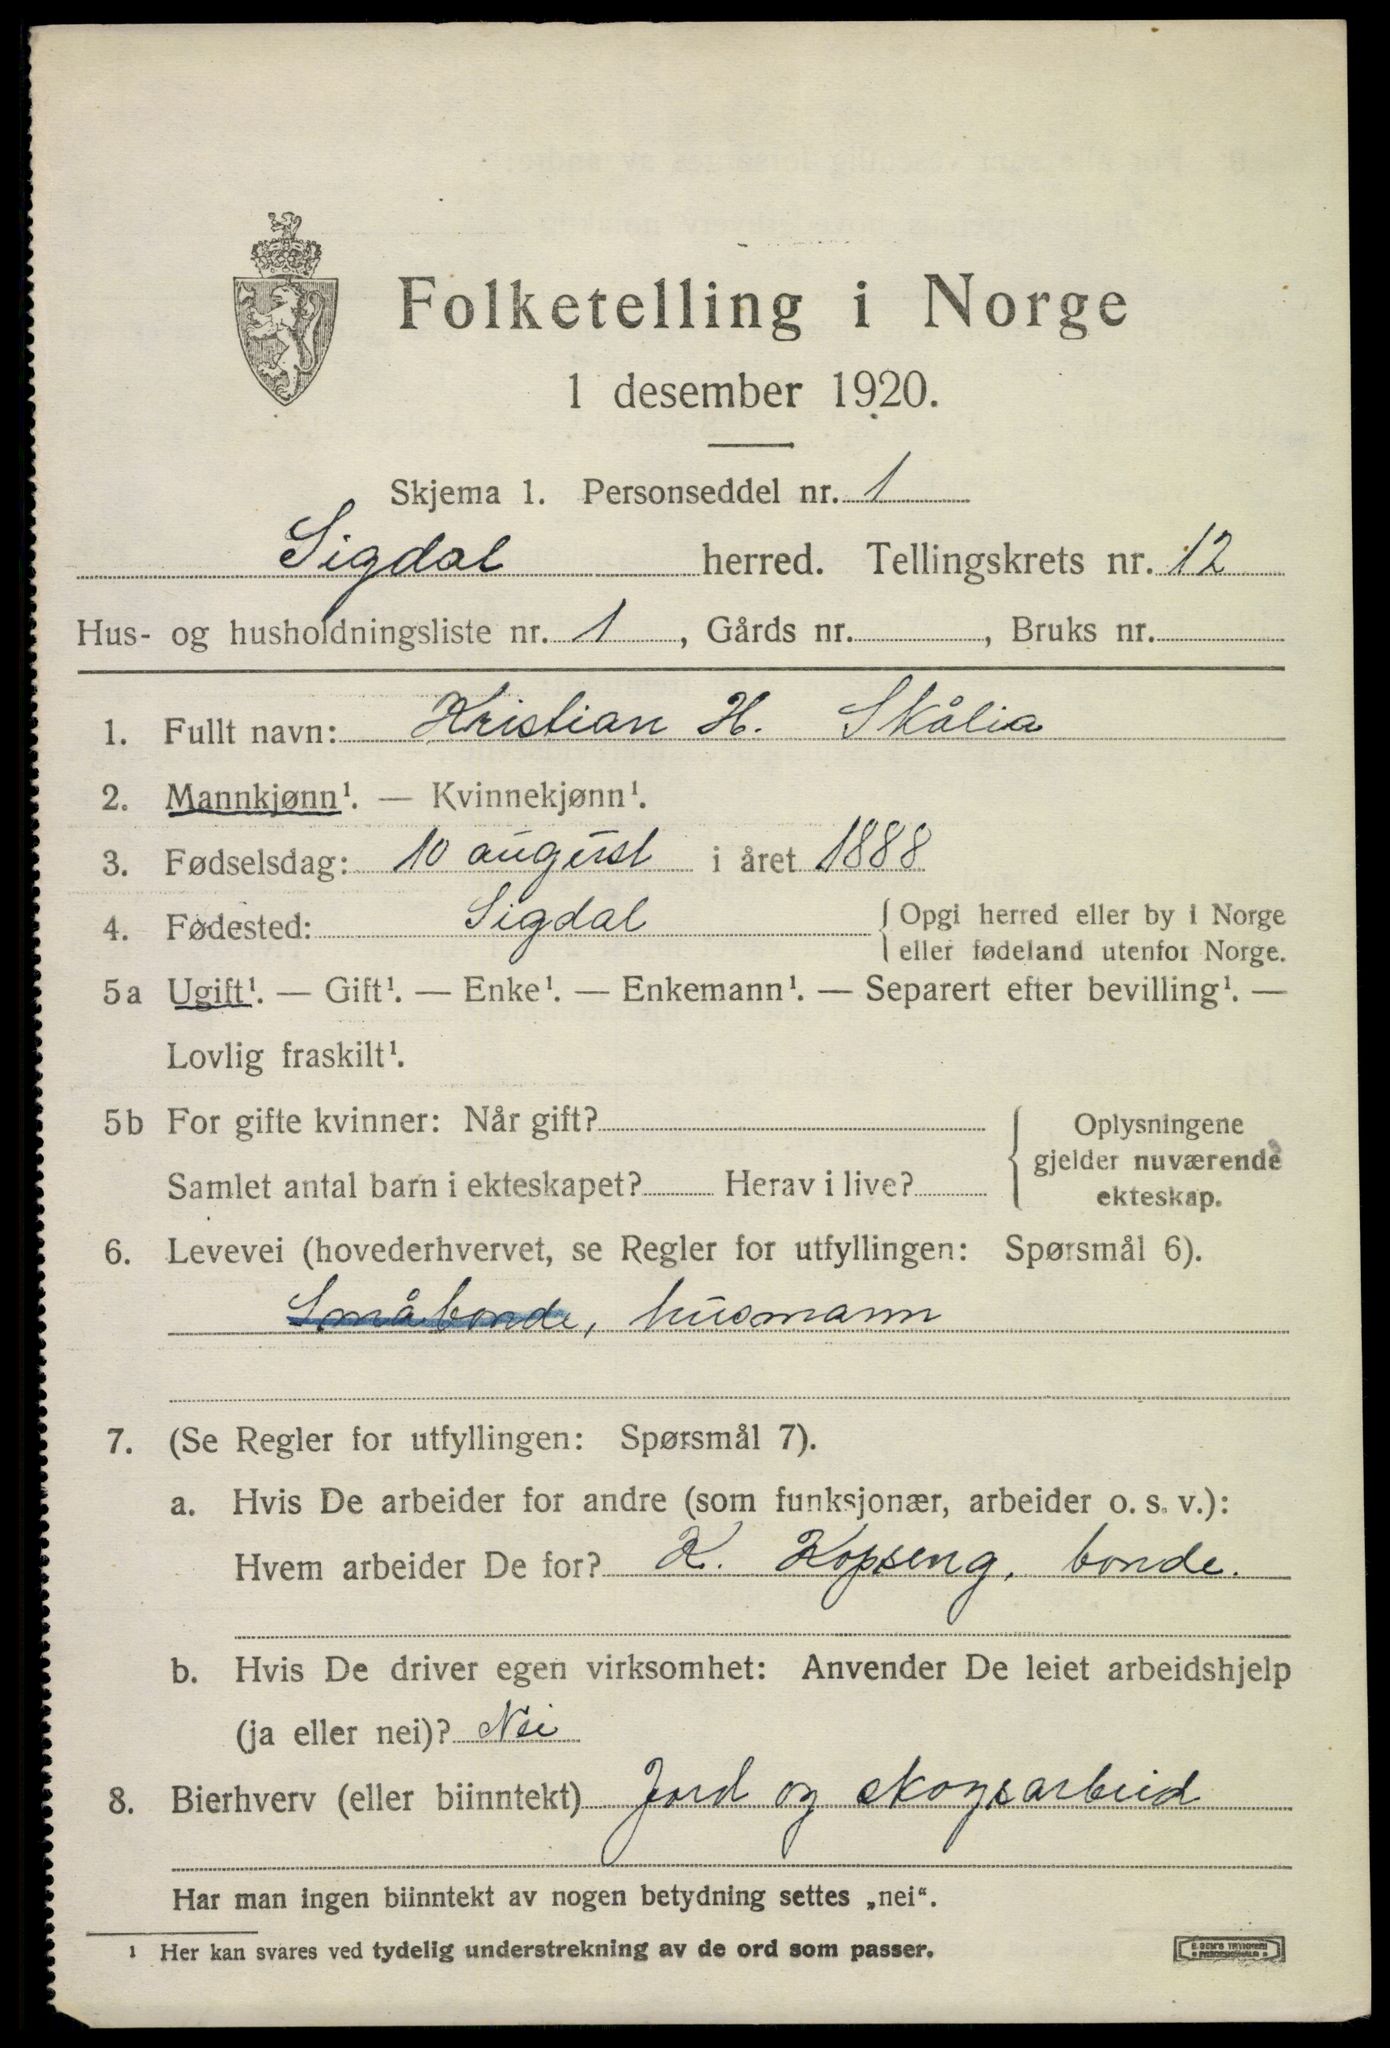 Folketelling i Norge
1 desember 1920.
Skjema 1. Personseddel nr. 1
Sigdal herred. Tellingskrets nr. 12
Hus- og husholdningsliste nr. 1, Gårds nr. , Bruks nr.
1. Fullt navn: Kristian H. Skålia
2. Mannkjønn¹. — Kvinnekjønn¹.
3. Fødselsdag: 10 august i året 1888
4. Fødested: Sigdal { Opgi herred eller by i Norge
eller fødeland utenfor Norge.
5a Ugift¹. — Gift¹. — Enke¹. — Enkemann¹. — Separert efter bevilling¹. —
Lovlig fraskilt¹.
5b For gifte kvinner: Når gift? { Oplysningene
gjelder nuværende
Samlet antal barn i ekteskapet? Herav i live? ekteskap.
6. Levevei (hovederhvervet, se Regler for utfyllingen: Spørsmål 6).
Småbonde, husmann
7. (Se Regler for utfyllingen: Spørsmål 7).
a. Hvis De arbeider for andre (som funksjonær, arbeider o. s. v.):
Hvem arbeider De for? K. Kopseng, bonde.
b. Hvis De driver egen virksomhet: Anvender De leiet arbeidshjelp
(ja eller nei)? Nei
8. Bierhverv (eller biinntekt) Jord og skogsarbeid
Har man ingen biinntekt av nogen betydning settes „nei“.
¹ Her kan svares ved tydelig understrekning av de ord som passer.